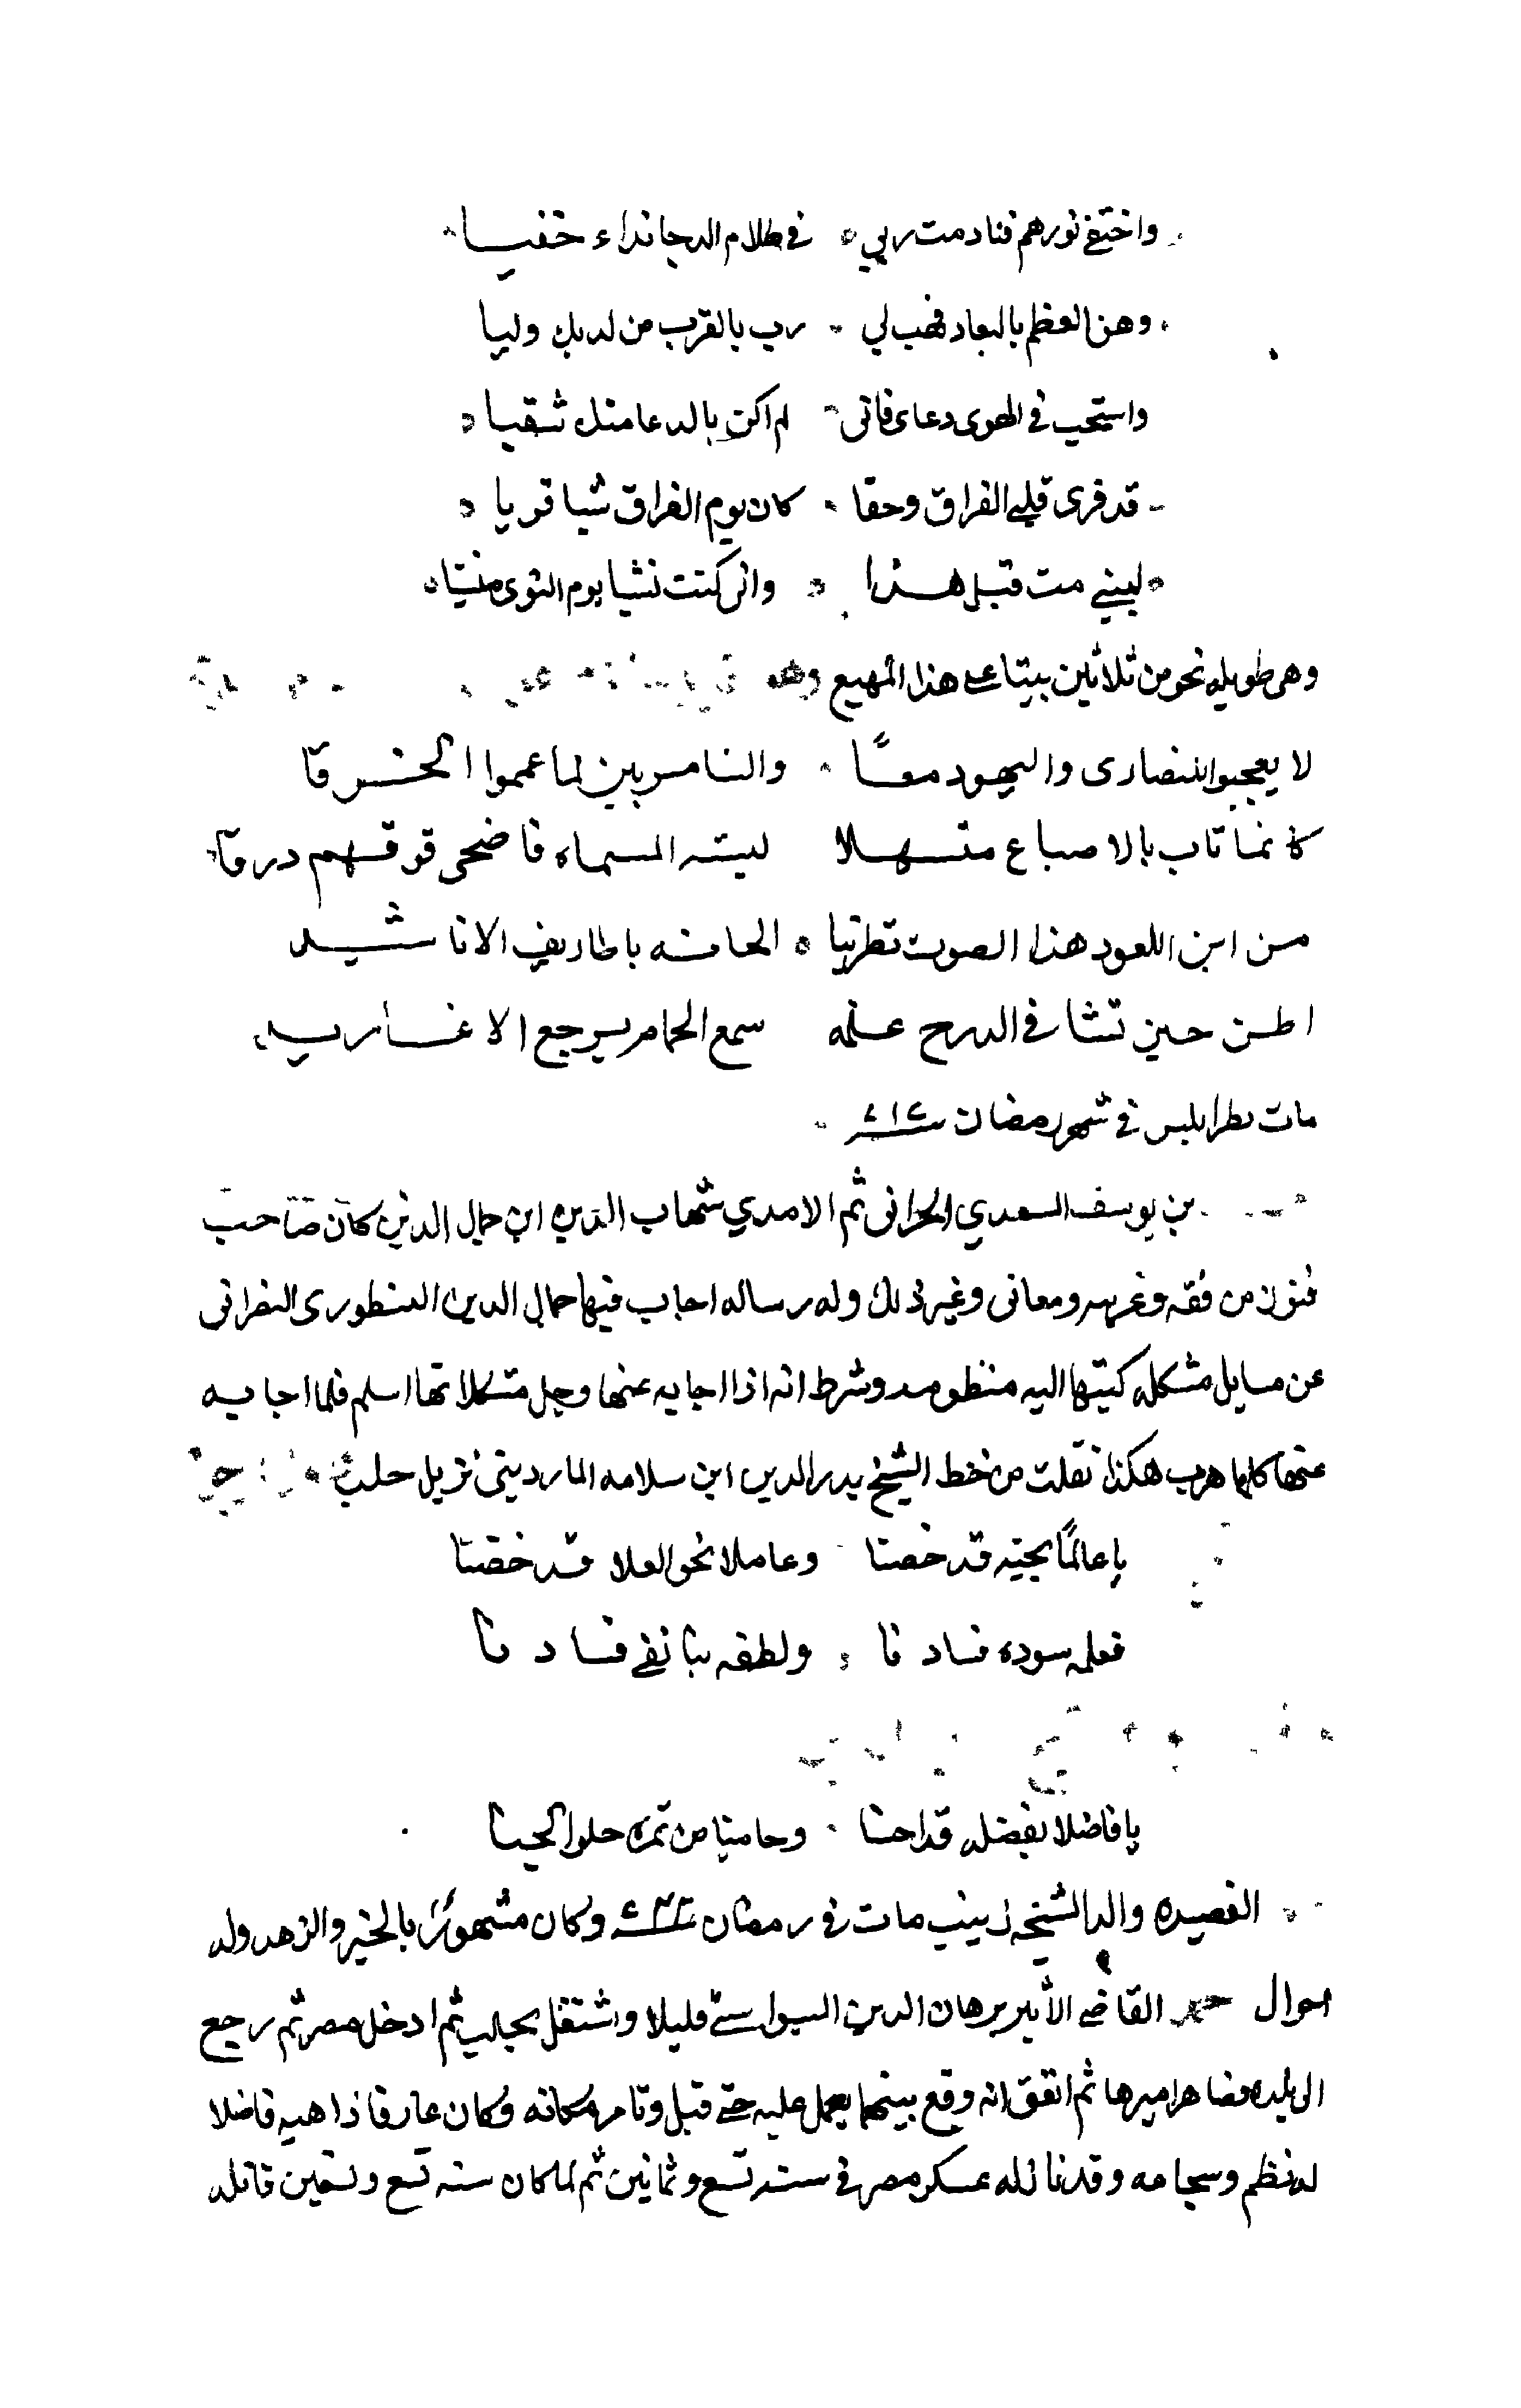 واختفى نورهم فنادمت ربي في ظلام الدجا نداء خفيا
وهن العظم بالبعاد فهب لي رب بالقرب من لديك وليا
واستجب في الهوى دعاى فانى لم اكن بالدعا منك شقيا
قد فرى قلبي الفراق وحقا كان يوم الفراق شيا فريا
ليتني مت قبل هذا وانى كنت نسيا يوم النوى منسيا
وهى طويله نحو من ثلاثين بيتا على هذا المهيع
لا تعجبوا للنصارى واليهود معًا والسامريين لما عمموا الخرقا
كانما بات بالاصباغ منهلا ليسته السماء فاضحى فوقهم درقا
من اين للعود هذا الصوت تطربنا الحانه باطاريف الاناشيد
اظن حين نشا في الدوح علمه سمع الحمام ترجيع الاغاريد
مات بطرابلس في شهر رمضان
بن يوسف السعدي الحرانى ثم الامدي شهاب الدين ابن جمال الدين كان صاحب
فنون من فقه وعربيه ومعانى وغير ذلك وله رساله اجاب فيها جمال الدين النسطورى النصرانى
عن مسايل مشكله كتبها اليه منظومه وشرط انه اذا اجابه عنها وحل مشكلاتها اسلم فلما اجابه
عنها كلها هرب هكذا نقلت من خط الشيخ بدر الدين ابن سلامه الماردينى نزيل حلب
يا عالمًا بحبه قد خصنا وعاملا نحو العلا قد خصنا
فعلمه سوده فسادنا ولطفه بنا نفى فسادنا
يا فاضلا بفضله قد احنا وحامنا من ثمره حلو الجنا
القصيده والد الشيخه زينب مات في رمضان وكان مشهورًا بالخير والزهد وله
احوال القاضي الأثير برهان الدين السيواسي قليلا واشتغل بحلب ثم ادخل مصر ثم رجع
الى بلده فصاهر اميرها ثم اتفق انه وقع بينهما يعمل عليه حتى قتل وتامر مكانه وكان عارفا ذا هيبه فاضلا
له نظم وسجاعه وقد نازله عسكر مصر في سنه تسع وثمانين ثم لما كان سنه تسع وتسعين قاتله